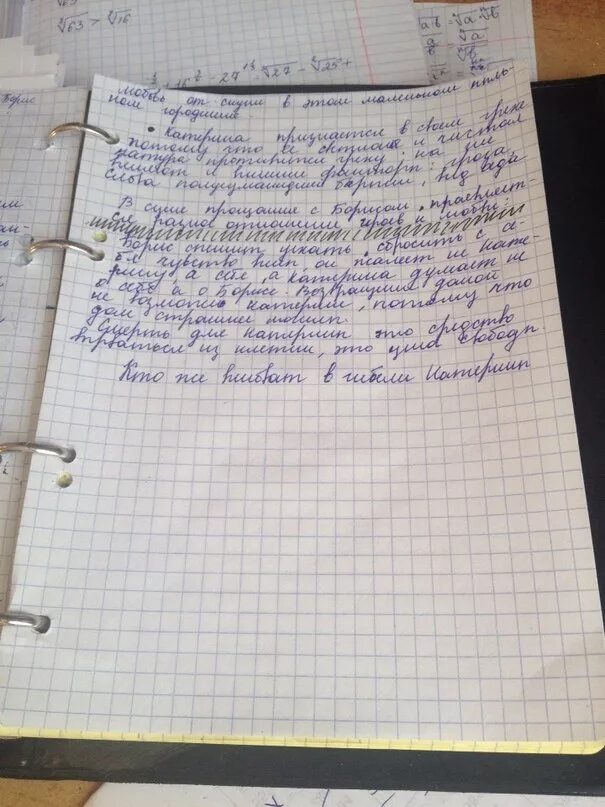 ∛63 > ∛16
Борис
любовь от скуки в этом маленьком пыль-
ном городишке
• Катерина признается в своем грехе
потому что ее сильная и чистая
натура противится греху, на нее
влияют и внешние факторы: гроза,
слова полусумашедшей барыни,
В сцене прощания с Борисом, проявляет-
ся разное отношение героев к любви:
Борис спешит уехать сбросить с се-
бя чувство вины он жалеет не Кате-
рину а себя, а Катерина думает не
о себе а о Борисе. Возвращение домой
не возможно Катерине, потому что
дом страшнее могилы
Смерть для Катерины это средство
вырваться из клетки, это цена свободы
Кто же виноват в гибели Катерины